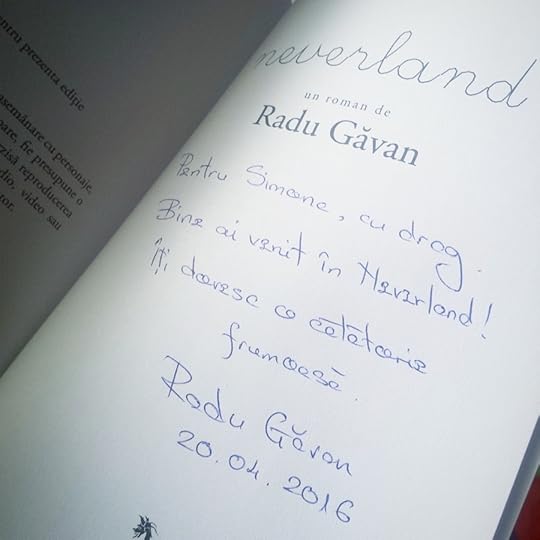 ntru prezenta ediție
asemănare cu personaje,
oare, fie presupune o
zisă reproducerea
dio, video sau
tor.
neverland
un roman de
Radu Găvan
Pentru Simone, cu drag.
Bine ai venit în Neverland!
Îți doresc o călătorie
frumoasă.
Radu Găvan
20.04.2016